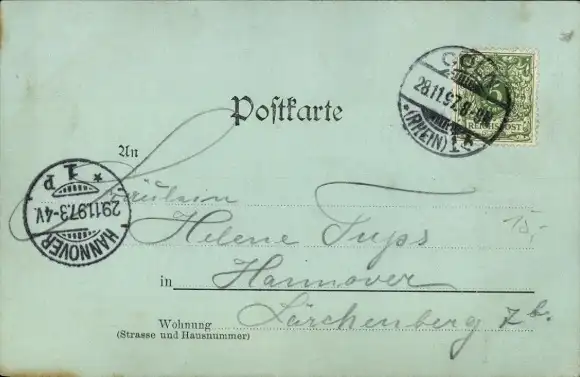 CÖLN
28.11.97. 8-9N.
*(RHEIN)1*
5
REICHSPOST
Postkarte
An
Fräulein
Helene Tups
in Hannover
Wohnung Lärchenberg 7b.
(Strasse und Hausnummer)
15,-
HANNOVER
29.11.97.3-4V.
* 1 p